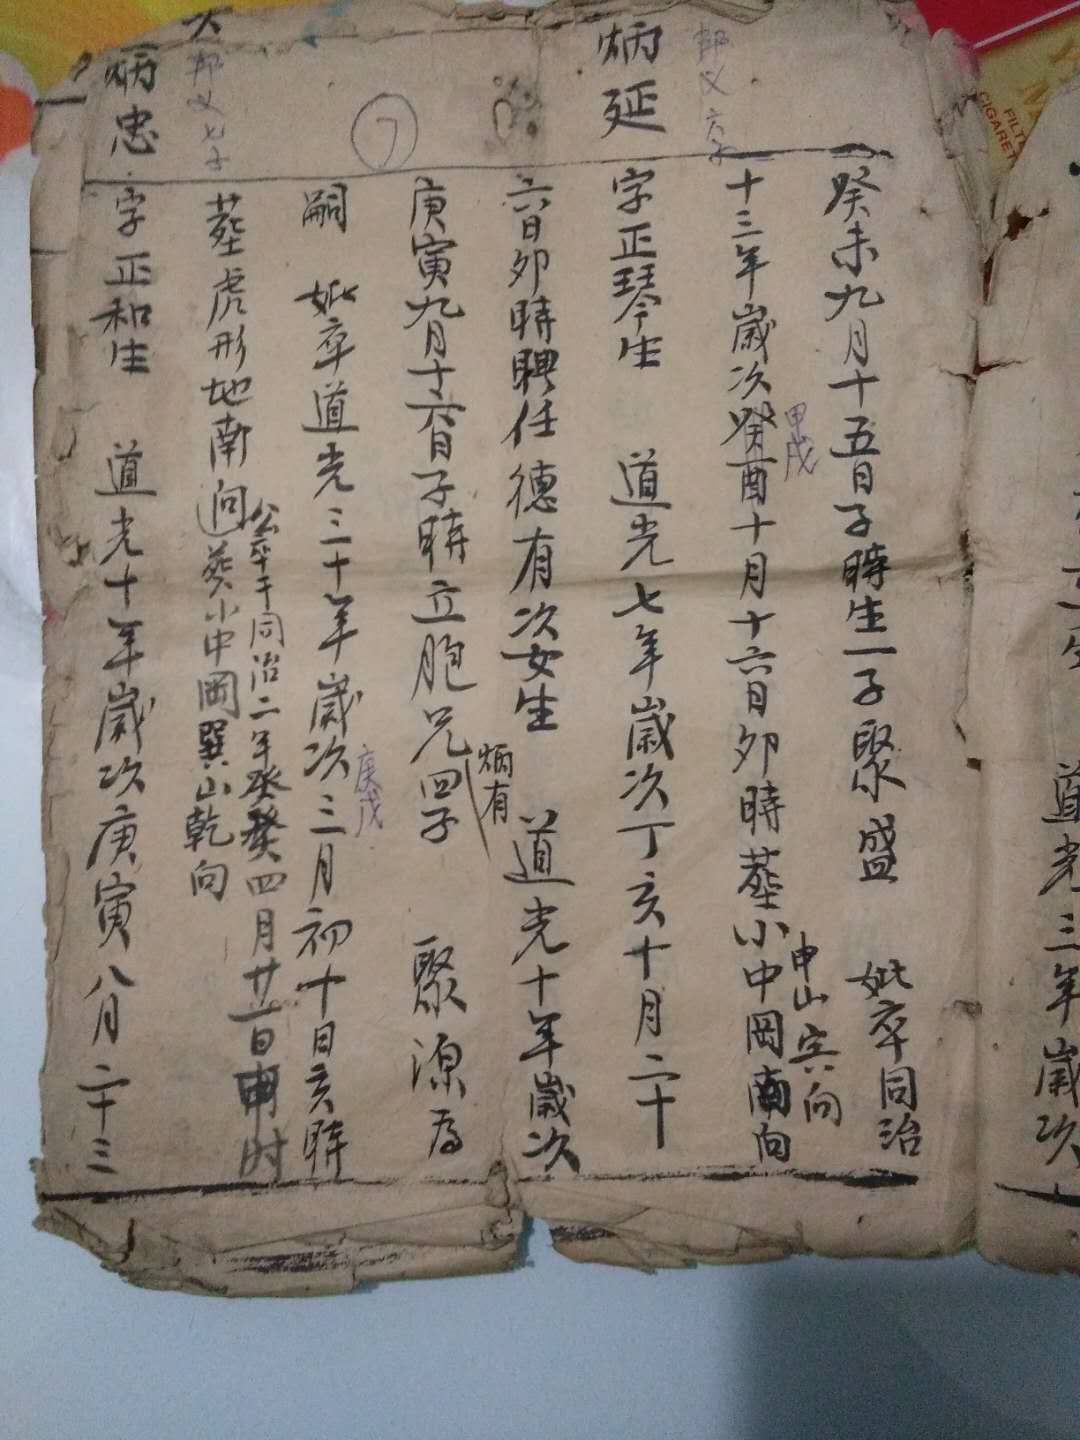 癸未九月十五日子時生一子聚盛 妣卒同治
十三年歲次癸酉十月十六日卯時塟小中岡南向
甲戌
申山寅向
炳延
邦义六子
字正琴生 道光七年歲次丁亥十月二十
六日卯時聘任德有次女生 道光十年歲次
庚寅九月十六日子時立胞兄四子 聚源为
炳有
嗣 妣卒道光三十年歲次三月初十日亥時
庚戌
公卒于同治二年癸四月廿一日申时
塟虎形地南向葵小中岡巽山乾向
7
炳忠
邦义七子
大
字正和生 道光十年歲次庚寅八月二十三
道光三年歲次
FILTER
CIGARET